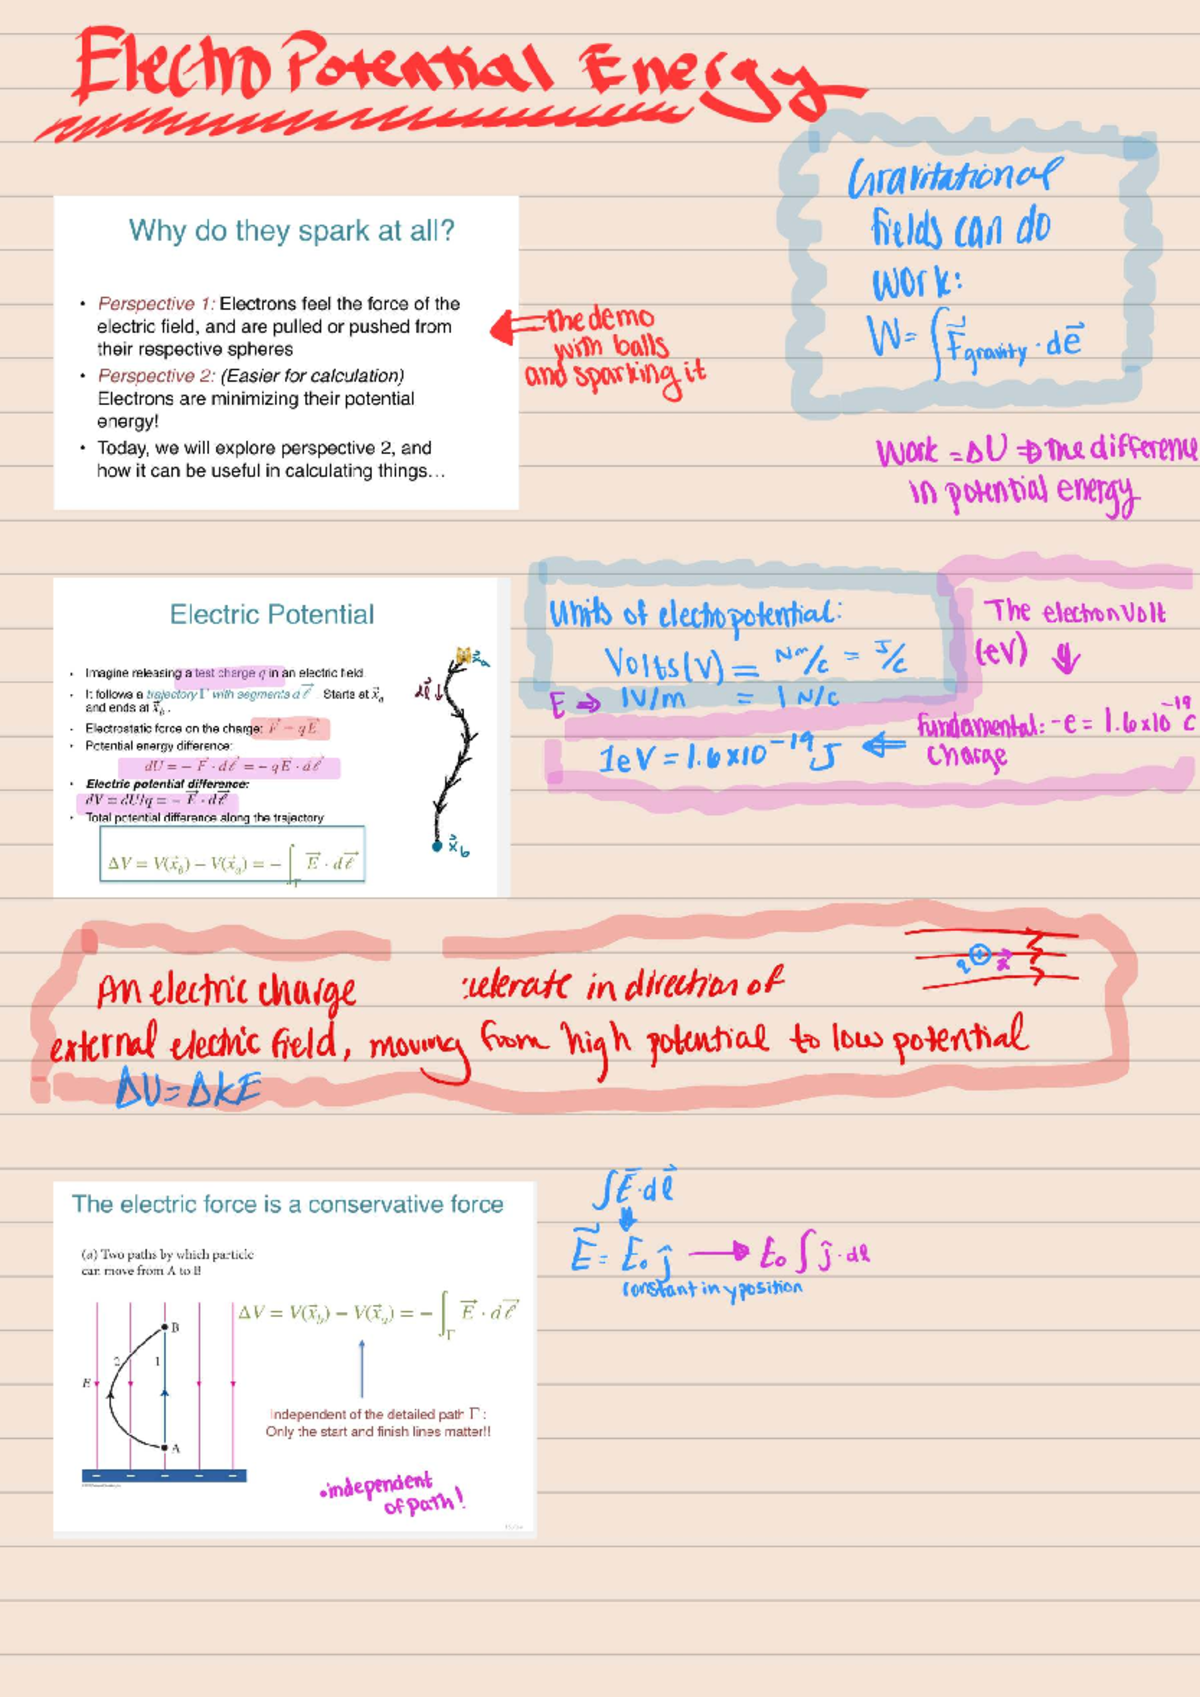 Electro Potential Energy
Why do they spark at all?
• Perspective 1: Electrons feel the force of the
electric field, and are pulled or pushed from
their respective spheres
• Perspective 2: (Easier for calculation)
Electrons are minimizing their potential
energy!
• Today, we will explore perspective 2, and
how it can be useful in calculating things…
the demo
with balls
and sparking it
Gravitational
fields can do
work:
W = ∫ F⃗gravity · dℓ⃗
Work = ΔU ⇒ the difference
in potential energy
Electric Potential
• Imagine releasing a test charge q in an electric field
• It follows a trajectory Γ with segments dℓ⃗ Starts at x⃗a
and ends at x⃗b.
• Electrostatic force on the charge: F⃗ = qE⃗
• Potential energy difference:
dU = − F⃗ · dℓ⃗ = −qE⃗ · dℓ⃗
• Electric potential difference:
dV = dU/q = − E⃗ · dℓ⃗
• Total potential difference along the trajectory
ΔV = V(x⃗b) − V(x⃗a) = − ∫Γ E⃗ · dℓ⃗
x⃗a
dℓ⃗ ↓
x⃗b
Units of electropotential:
Volts(V) = Nm/C = J/C
E ⇒ 1V/m = 1 N/C
1eV = 1.6x10⁻¹⁹ J ⇐
The electron Volt
(eV) ⇓
fundamental: -e = 1.6x10⁻¹⁹ C
charge
An electric charge celerate in direction of
external electric field, moving from high potential to low potential
ΔU = ΔKE
q + x⃗
The electric force is a conservative force
(a) Two paths by which particle
can move from A to B
ΔV = V(x⃗b) − V(x⃗a) = − ∫Γ E⃗ · dℓ⃗
B
2 1
E
A
Independent of the detailed path Γ:
Only the start and finish lines matter!!
• independent
of path!
∫E⃗·dℓ⃗
↓
E⃗ = E₀ ĵ → E₀ ∫ ĵ · dℓ
constant in y position